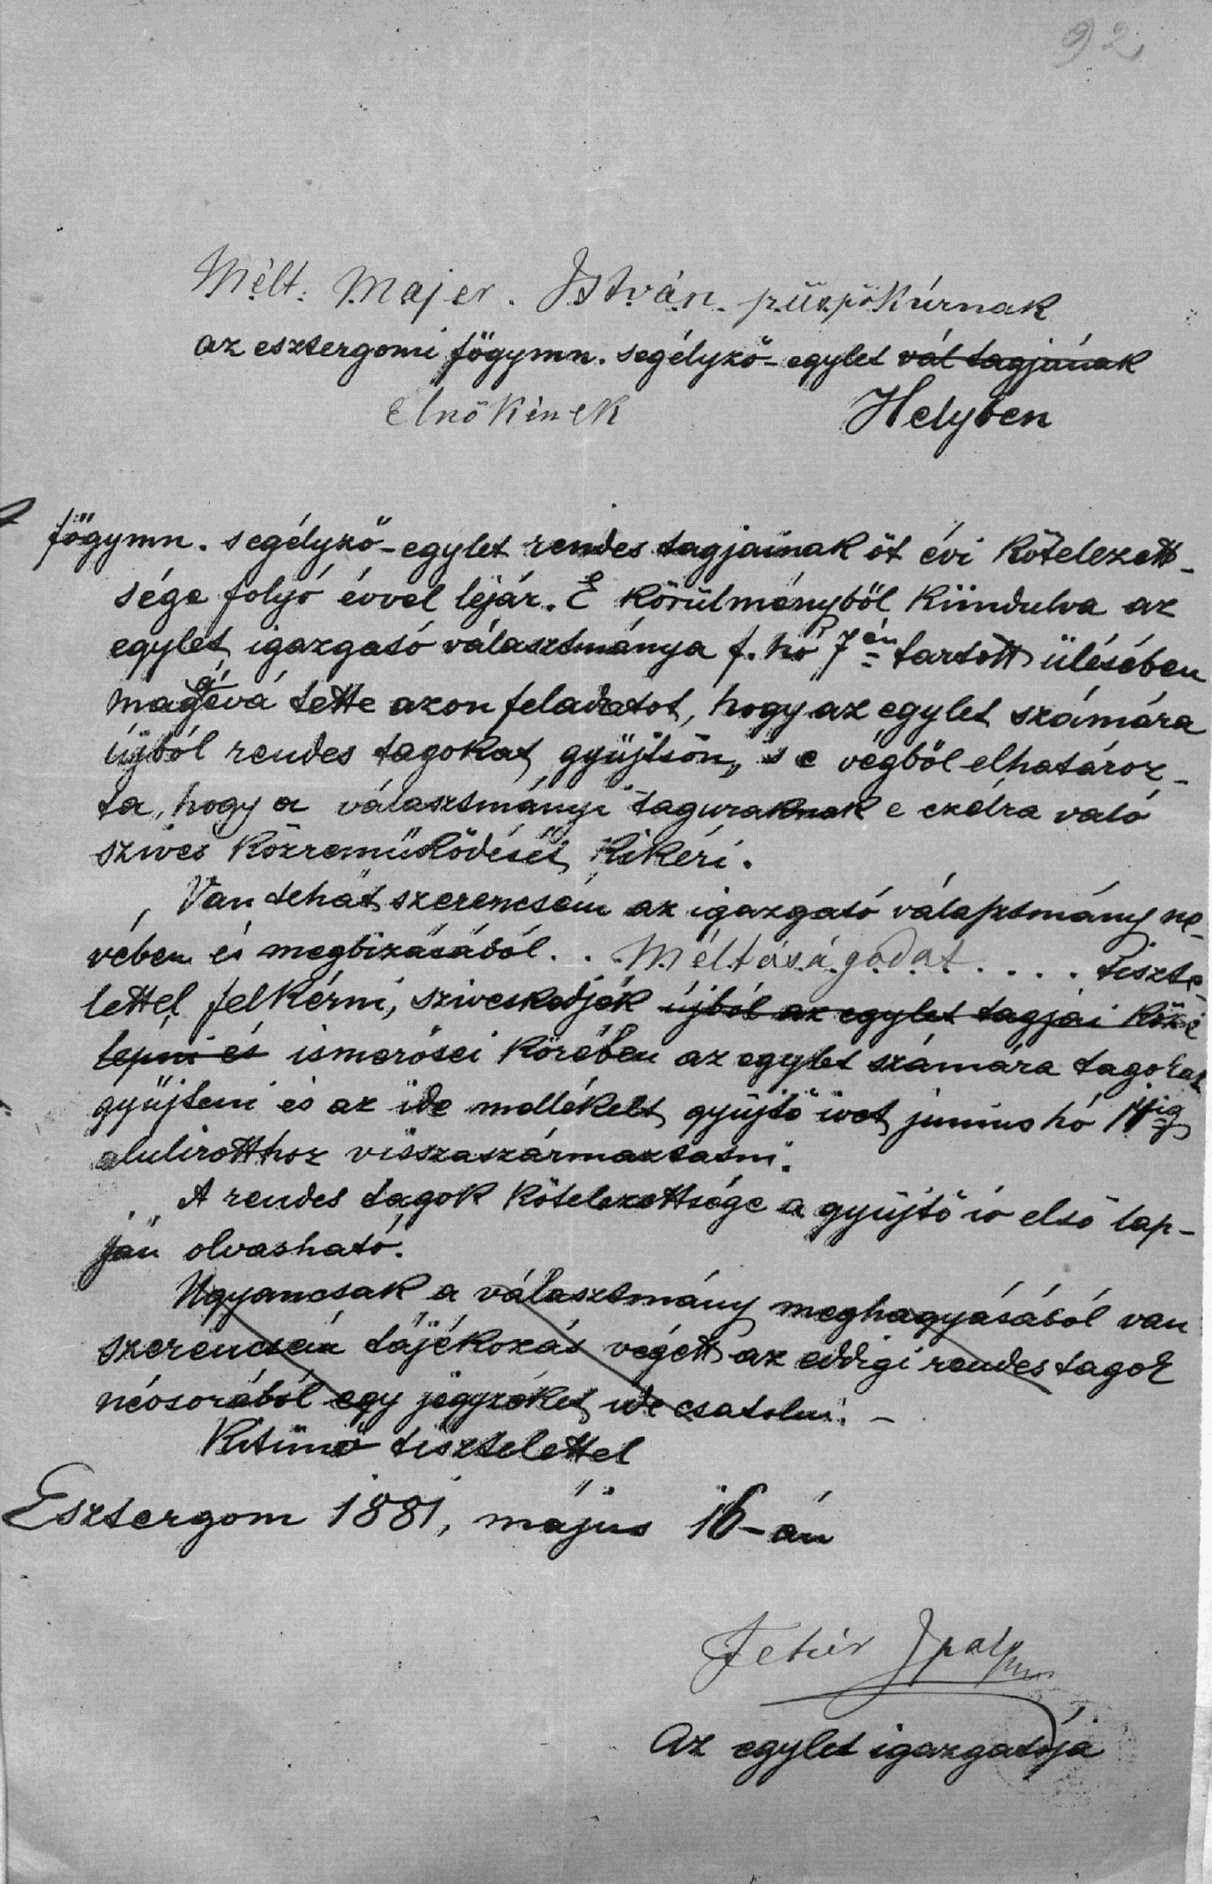 92
Mélt. Majer. István. püspökúrnak
az esztergomi főgymn. segélyző-egylet vál tagjának
Elnökének Helyben
főgymn. segélyző-egylet rendes tagjainak öt évi kötelezett-
sége folyó évvel lejár. E körülményből kiindulva az
egylet igazgató választmánya f. hó 7én tartott ülésében
magáévá tette azon feladatot, hogy az egylet számára
újból rendes tagokat gyűjtsön, s e végből elhatároz-
ta, hogy a választmányi taguraknak e czélra való
szives közreműködését kikéri.
Van tehát szerencsém az igazgató választmány ne-
vében és megbizásából . . Méltóságodat . . . . tiszte-
lettel felkérni, sziveskedjék újból az egylet tagjai közé
lépni és ismerősei körében az egylet számára tagokat
gyűjteni és az ide mellékelt gyűjtő ivet junius hó
alulirotthoz visszaszármaztatni.
A rendes tagok kötelezettsége a gyűjtő ív első lap-
ján olvasható.
Ugyancsak a választmány meghagyásából van
szerencsém tájékozás végett az eddigi rendes tagok
névsorából egy jegyzéket ide csatolni. -
Kitünő tisztelettel
Esztergom 1881, május 16-án
Fehér Ipoly
Az egylet igazgatója